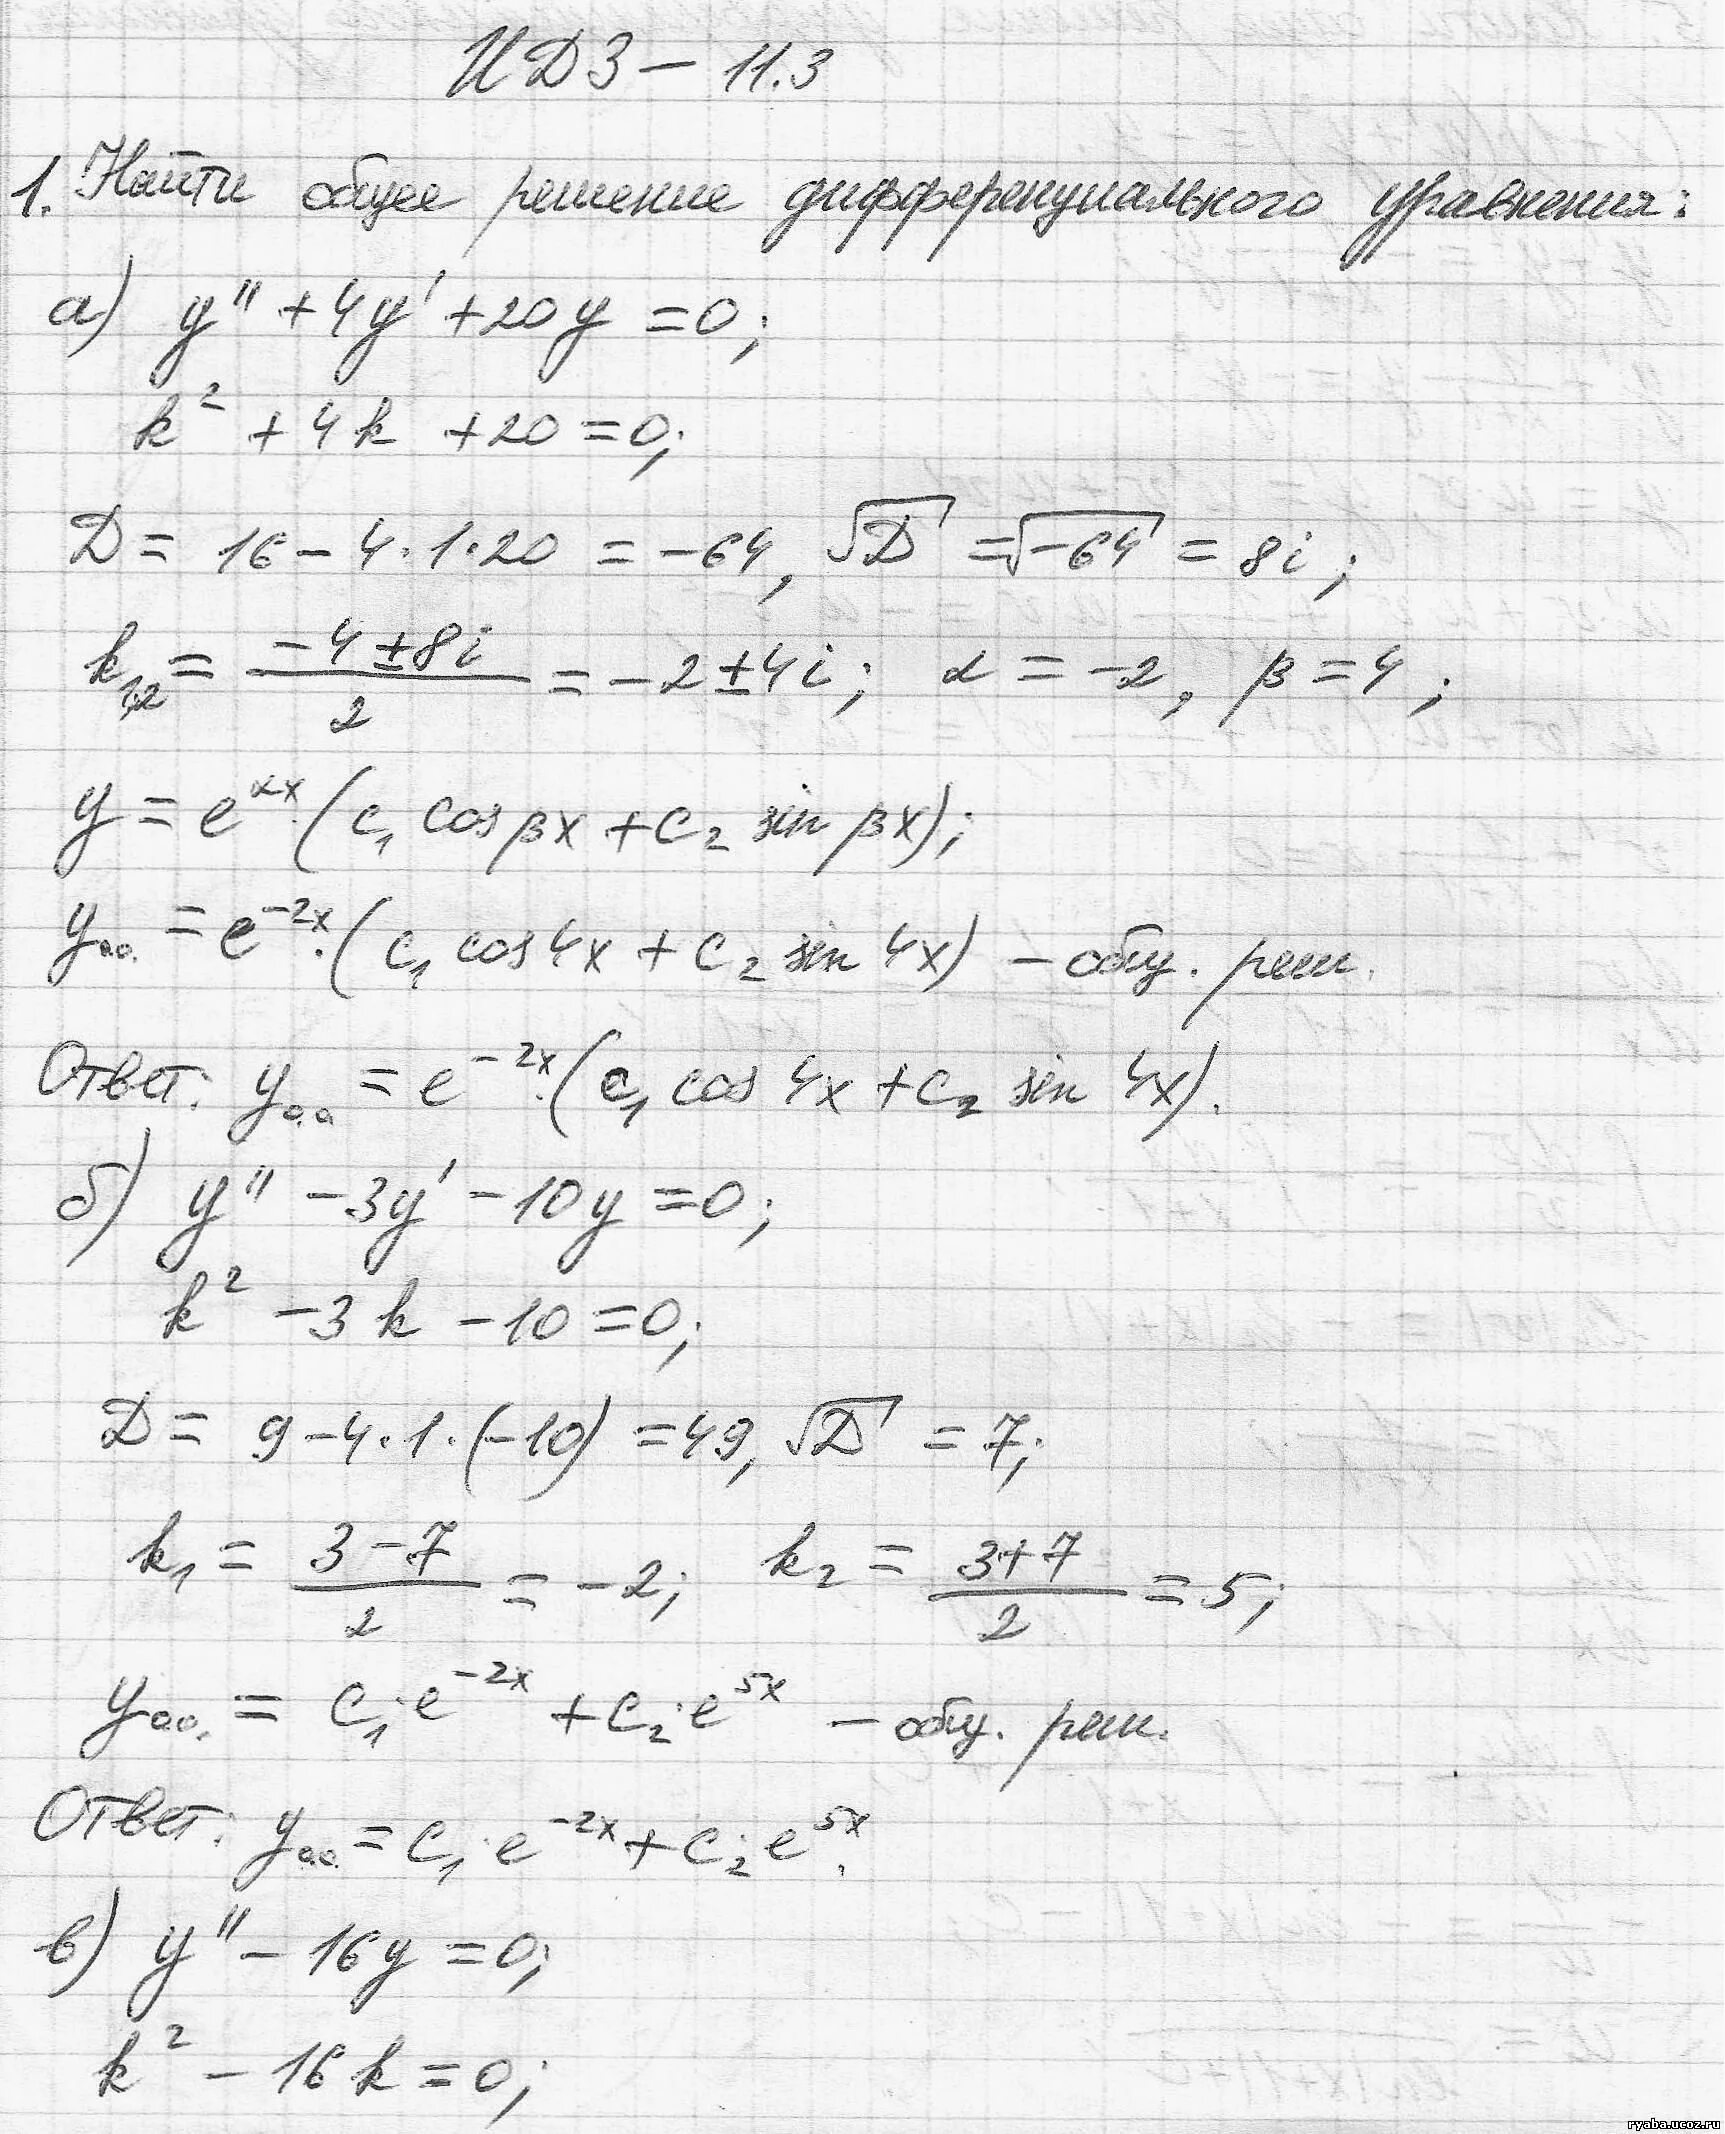 ИДЗ – 11.3
1. Найти общее решение дифференциального уравнения:
а) y'' + 4y' + 20y = 0;
k² + 4k + 20 = 0;
D = 16 – 4·1·20 = –64, √D = √–64 = 8i;
k₁,₂ = (–4 ± 8i)/2 = –2 ± 4i; α = –2, β = 4;
y = e^αx·(c₁ cos βx + c₂ sin βx);
yо.о. = e^–2x·(c₁ cos 4x + c₂ sin 4x) – общ. реш.
Ответ: yо.о = e^–2x·(c₁ cos 4x + c₂ sin 4x).
б) y'' – 3y' – 10y = 0;
k² – 3k – 10 = 0;
D = 9 – 4·1·(–10) = 49, √D = 7;
k₁ = (3 – 7)/2 = –2; k₂ = (3 + 7)/2 = 5;
yо.о. = C₁·e^–2x + C₂·e^5x – общ. реш.
Ответ: yо.о. = C₁·e^–2x + C₂·e^5x.
в) y'' – 16y = 0;
k² – 16k = 0;
ryaba.ucoz.ru